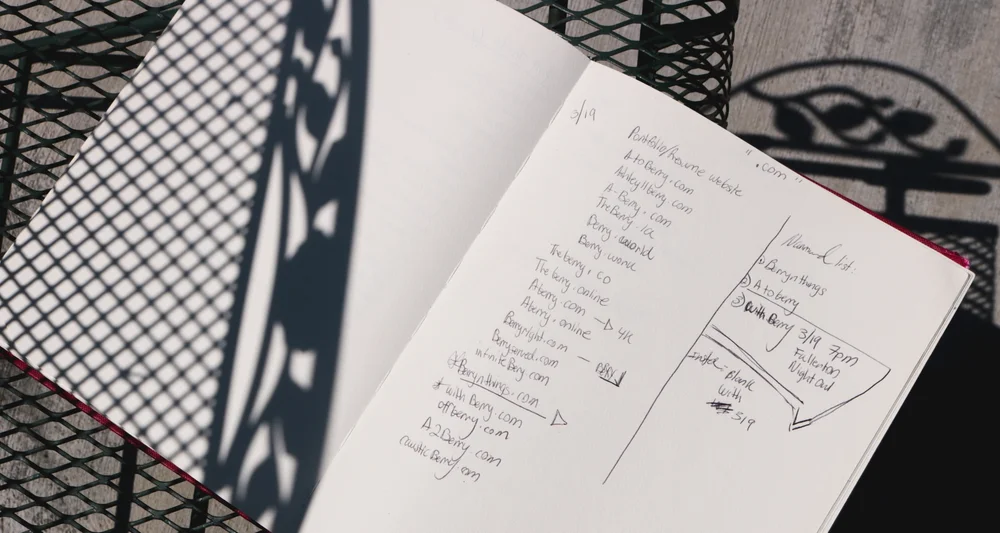 3/19
Portfolio/Resume website
AtoBerry.com
Ashley11berry.com
A-Berry.com
TheBerry.ia
Berry.world
Berry.work
Theberry.co
Theberry.online
Aberry.com → 4K
Aberry.online
Berryright.com — BERRY
Berryserved.com
infiniteBerry.com
*Berrynthings.com
* with Berry.com
offberry.com
A2Berry.com
causticBerry.com
" .com "
list:
① Berrynthings
② Atoberry
③ with Berry 3/19 7pm
Fullerton
Night Out
Blank
with
3/9